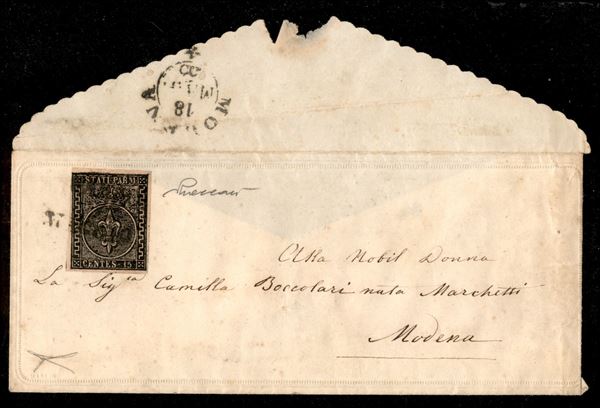 MODENA
18
STATI PARM.
CENTES. 15
Alla Nobil Donna
La Sig.ra Camilla Boccolari nata Marchetti
Modena